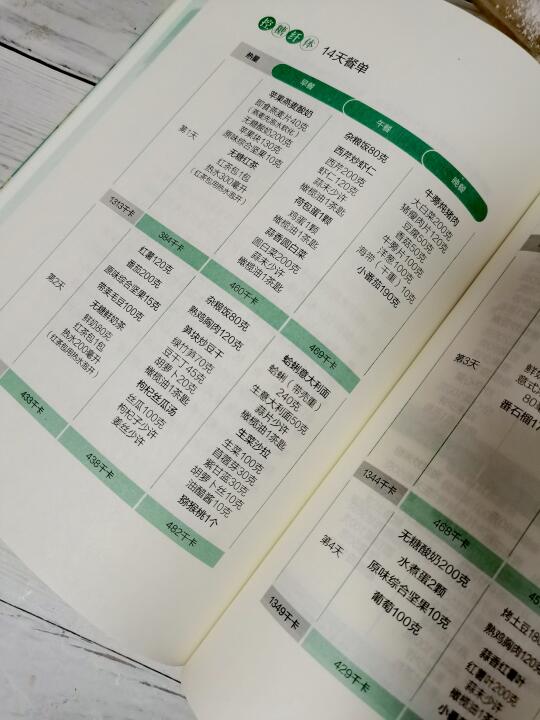 控糖纤体
14天餐单
热量
早餐
午餐
晚餐
第1天
苹果燕麦酸奶
即食燕麦片40克
(燕麦先泡水软化)
无糖酸奶200克
苹果块130克
原味综合坚果10克
无糖红茶
红茶包1包
热水300毫升
(红茶包用热水泡开)
杂粮饭80克
西芹炒虾仁
西芹200克
虾仁120克
蒜末少许
橄榄油1茶匙
荷包蛋1颗
鸡蛋1颗
橄榄油1茶匙
蒜香圆白菜
圆白菜200克
蒜末少许
橄榄油1茶匙
牛蒡炖猪肉
大白菜200克
猪瘦肉片120克
豆腐50克
香菇50克
牛蒡片100克
洋葱100克
海带(干重)10克
小番茄190克
1313千卡
384千卡
460千卡
469千卡
第2天
红薯120克
番茄200克
原味综合坚果15克
带荚毛豆100克
无糖鲜奶茶
鲜奶80克
红茶包1包
热水200毫升
(红茶包用热水泡开)
杂粮饭80克
熟鸡胸肉120克
笋块炒豆干
绿竹笋70克
豆干丁45克
胡萝卜20克
橄榄油1茶匙
枸杞丝瓜汤
丝瓜100克
枸杞子少许
姜丝少许
蛤蜊意大利面
蛤蜊(带壳重)
240克
生意大利面50克
蒜片少许
橄榄油1茶匙
生菜沙拉
生菜100克
苜蓿芽30克
紫甘蓝30克
胡萝卜丝10克
油醋酱10克
猕猴桃1个
433千卡
438千卡
482千卡
第3天
意式
番石榴
1344千卡
468千卡
第4天
无糖酸奶200克
水煮蛋2颗
原味综合坚果10克
葡萄100克
烤土豆
熟鸡胸肉120
蒜香红薯叶
红薯叶200克
蒜末少许
橄榄油1茶
1349千卡
429千卡